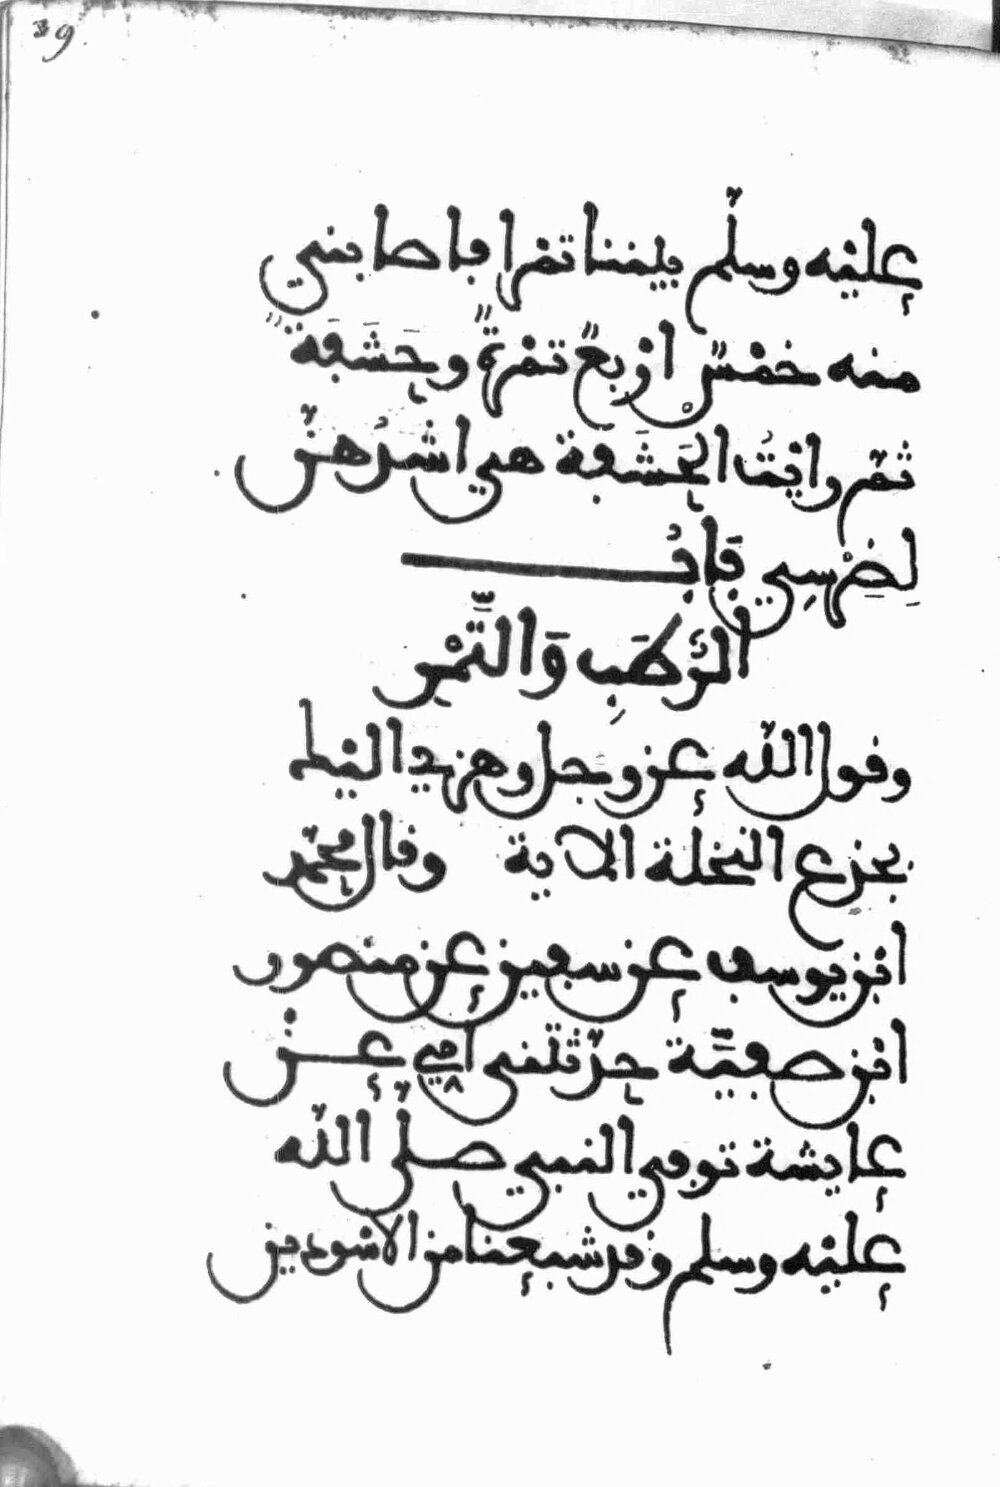 39
عليه وسلم بيننا تمرا فاصابني
منه خمسٌ اربعُ تمرةٍ وحَشَفَةٌ
ثم رايتُ الحَشَفة هي اشدُهنّ
لِضِرْسِي بَابُ
الرُّطَبِ وَالتَّمْرِ
وقول الله عز وجل وهزي اليك
بجزع النخلة الاية وقال محمد
ابن يوسف عن سفين عن منصور
ابن صفيّة حدّثتني امي عن
عايشة توفي النبي صلى الله
عليه وسلم وقد شبعنا من الاسودين